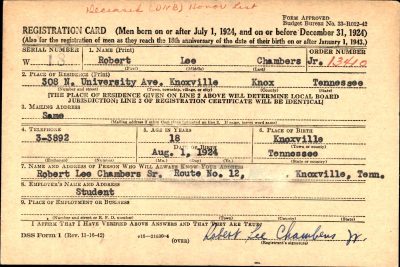 Deceased (DNB) Honor List
Form Approved
Budget Bureau No. 33-R012-42
REGISTRATION CARD (Men born on or after July 1, 1924, and on or before December 31, 1924)
(Also for the registration of men as they reach the 18th anniversary of the date of their birth on or after January 1, 1943.)
SERIAL NUMBER 1. NAME (Print) ORDER NUMBER
W 18 Robert Lee Chambers Jr. 13410
(First) (Middle) (Last)
2. PLACE OF RESIDENCE (Print)
308 N. University Ave. Knoxville Knox Tennessee
(Number and street) (Town, township, village, or city) (County) (State)
[THE PLACE OF RESIDENCE GIVEN ON LINE 2 ABOVE WILL DETERMINE LOCAL BOARD
JURISDICTION; LINE 2 OF REGISTRATION CERTIFICATE WILL BE IDENTICAL]
3. MAILING ADDRESS
Same
(Mailing address if other than place indicated on line 2. If same, insert word same)
4. TELEPHONE 5. AGE IN YEARS 6. PLACE OF BIRTH
3-3892 18 Knoxville
DATE OF BIRTH (Town or county)
Aug. 1, 1924 Tennessee
(Exchange) (Number) (Mo.) (Day) (Yr.) (State or country)
7. NAME AND ADDRESS OF PERSON WHO WILL ALWAYS KNOW YOUR ADDRESS
Robert Lee Chambers Sr. Route No. 12, Knoxville, Tenn.
8. EMPLOYER'S NAME AND ADDRESS
Student
9. PLACE OF EMPLOYMENT OR BUSINESS
(Number and street or R. F. D. number) (Town) (County) (State)
I AFFIRM THAT I HAVE VERIFIED ABOVE ANSWERS AND THAT THEY ARE TRUE.
DSS Form 1 (Rev. 11-16-42) (OVER) Robert Lee Chambers Jr.
(Registrant's signature)